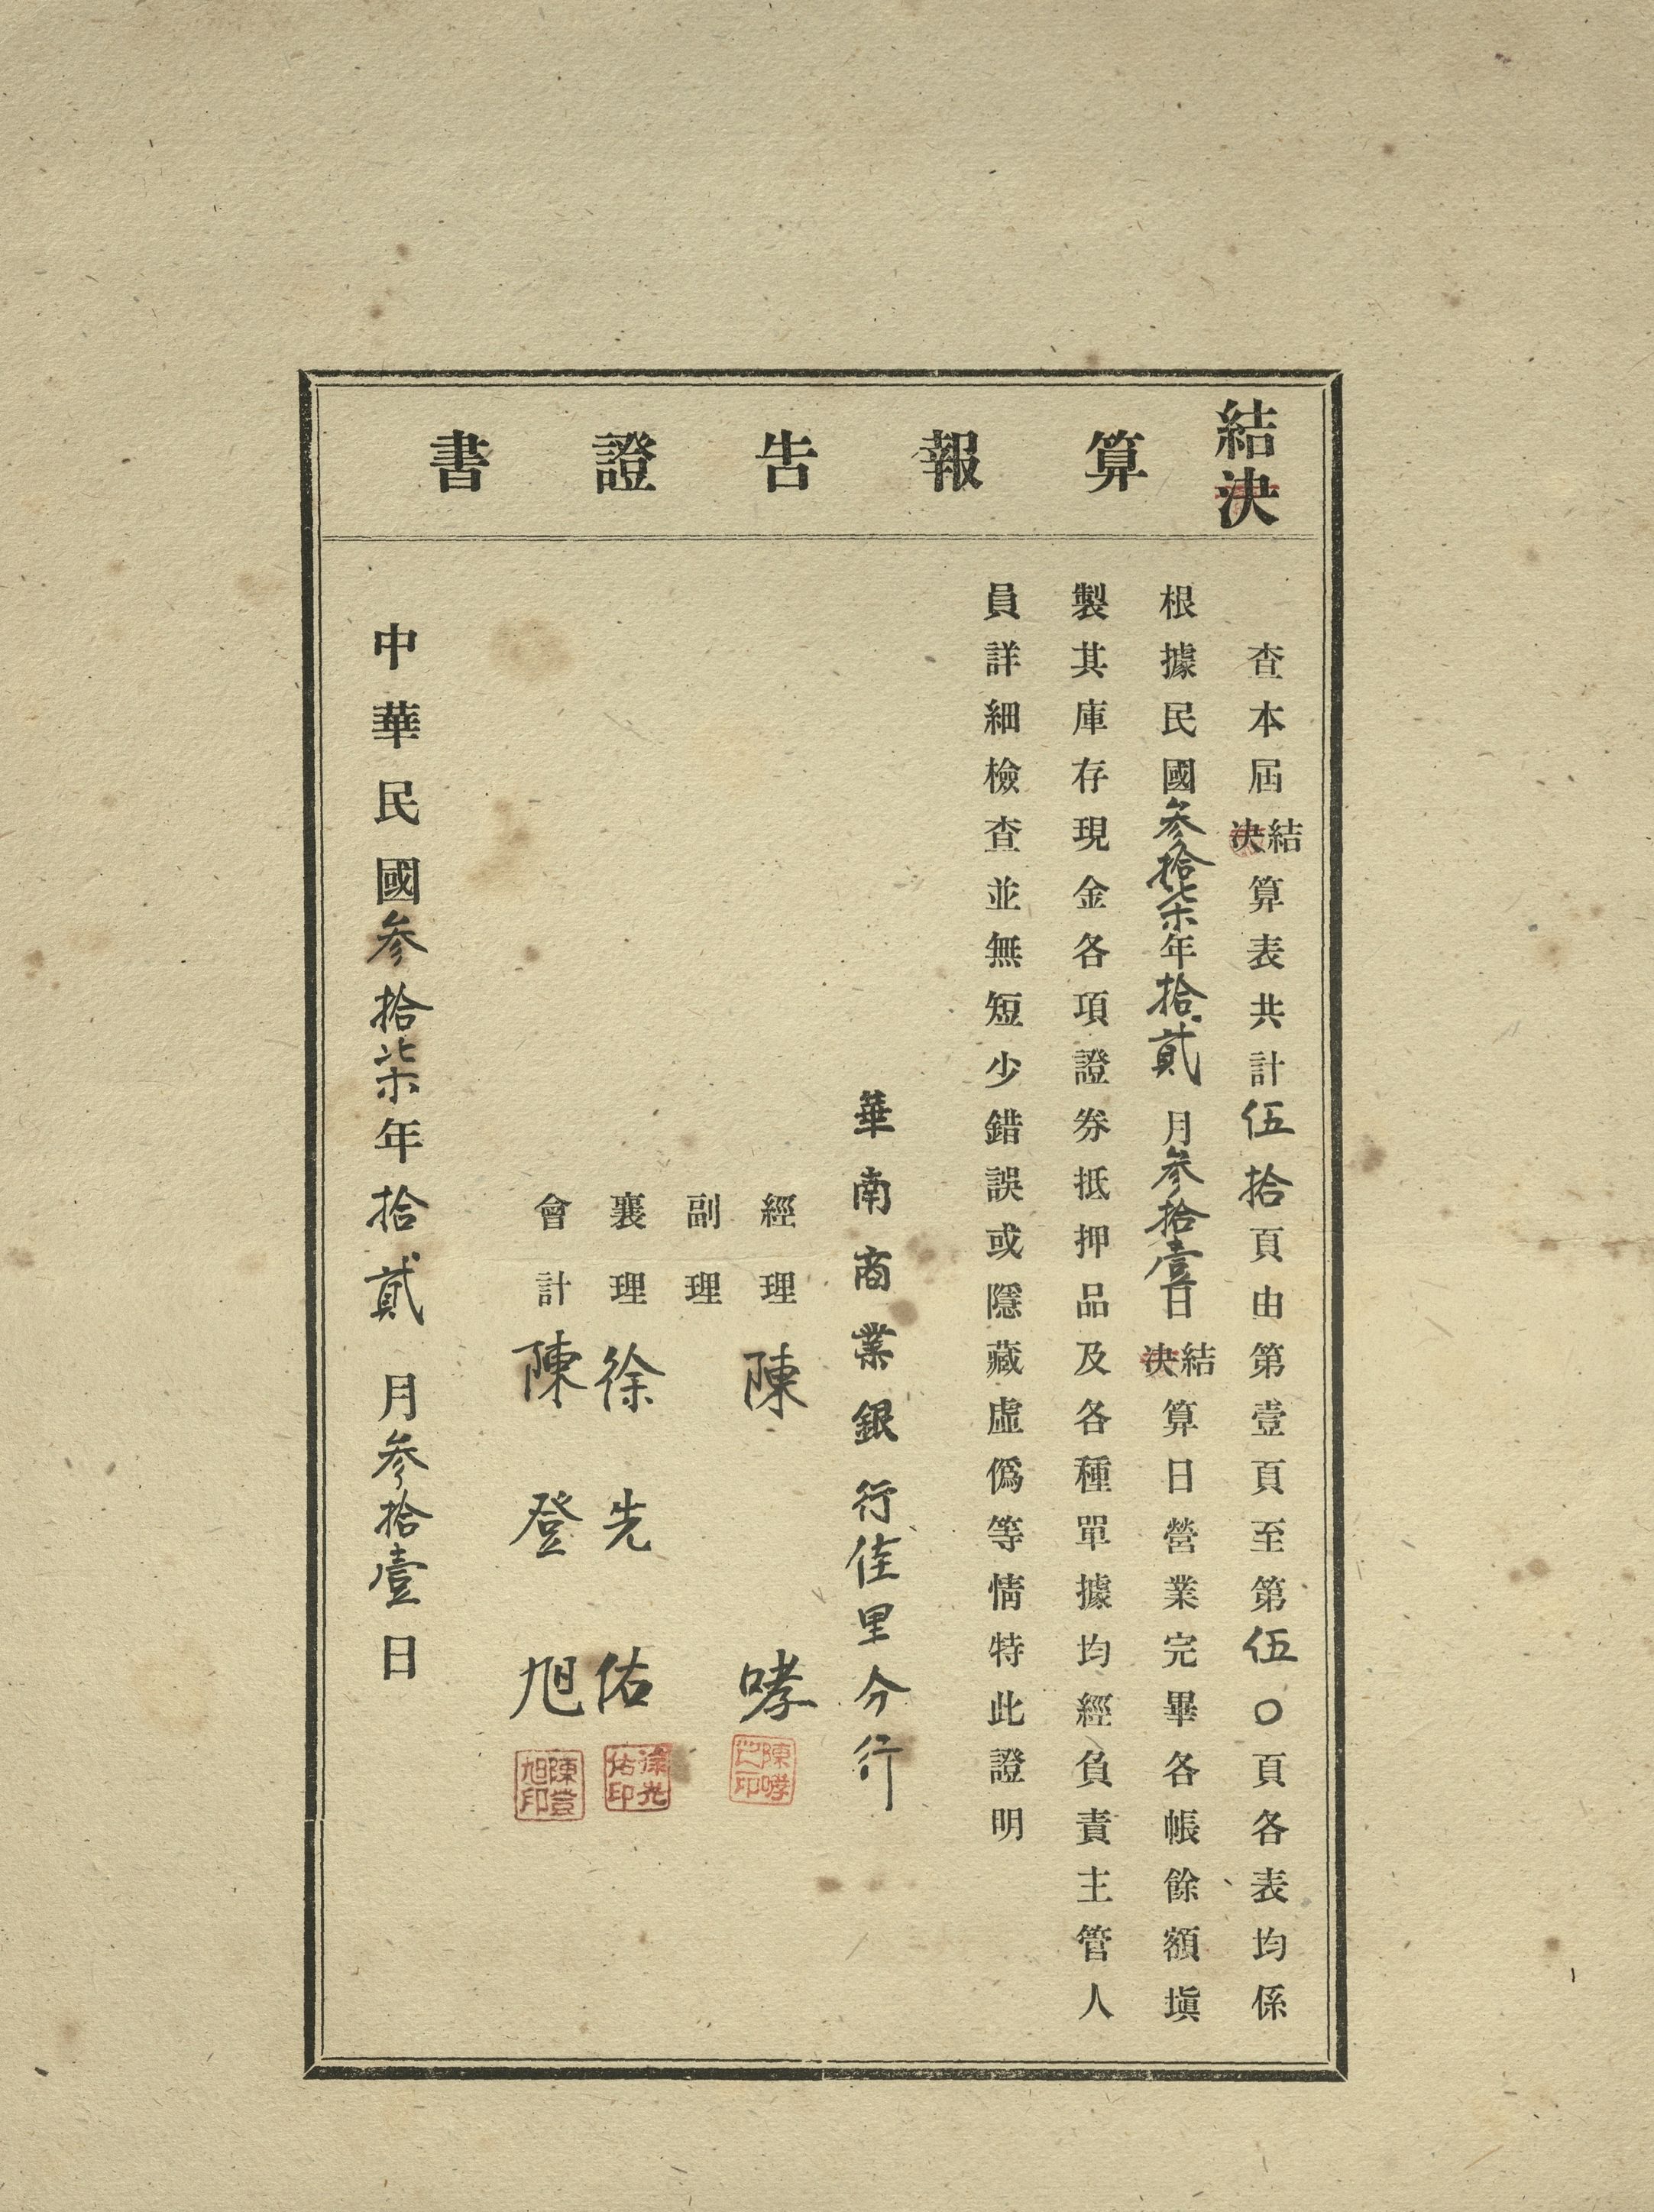 結決算報告證書
查本屆結決算表共計伍拾頁由第壹頁至第伍〇頁各表均係
根據民國叁拾柒年拾貳月叁拾壹日結決算日營業完畢各帳餘額塡
製其庫存現金各項證券抵押品及各種單據均經負責主管人
員詳細檢查並無短少錯誤或隱藏虛僞等情特此證明
華南商業銀行佳里分行
經理 陳哮
陳哮之印
副理
襄理 徐先佑
徐先佑印
會計 陳登旭
陳登旭印
中華民國叁拾柒年拾貳月叁拾壹日